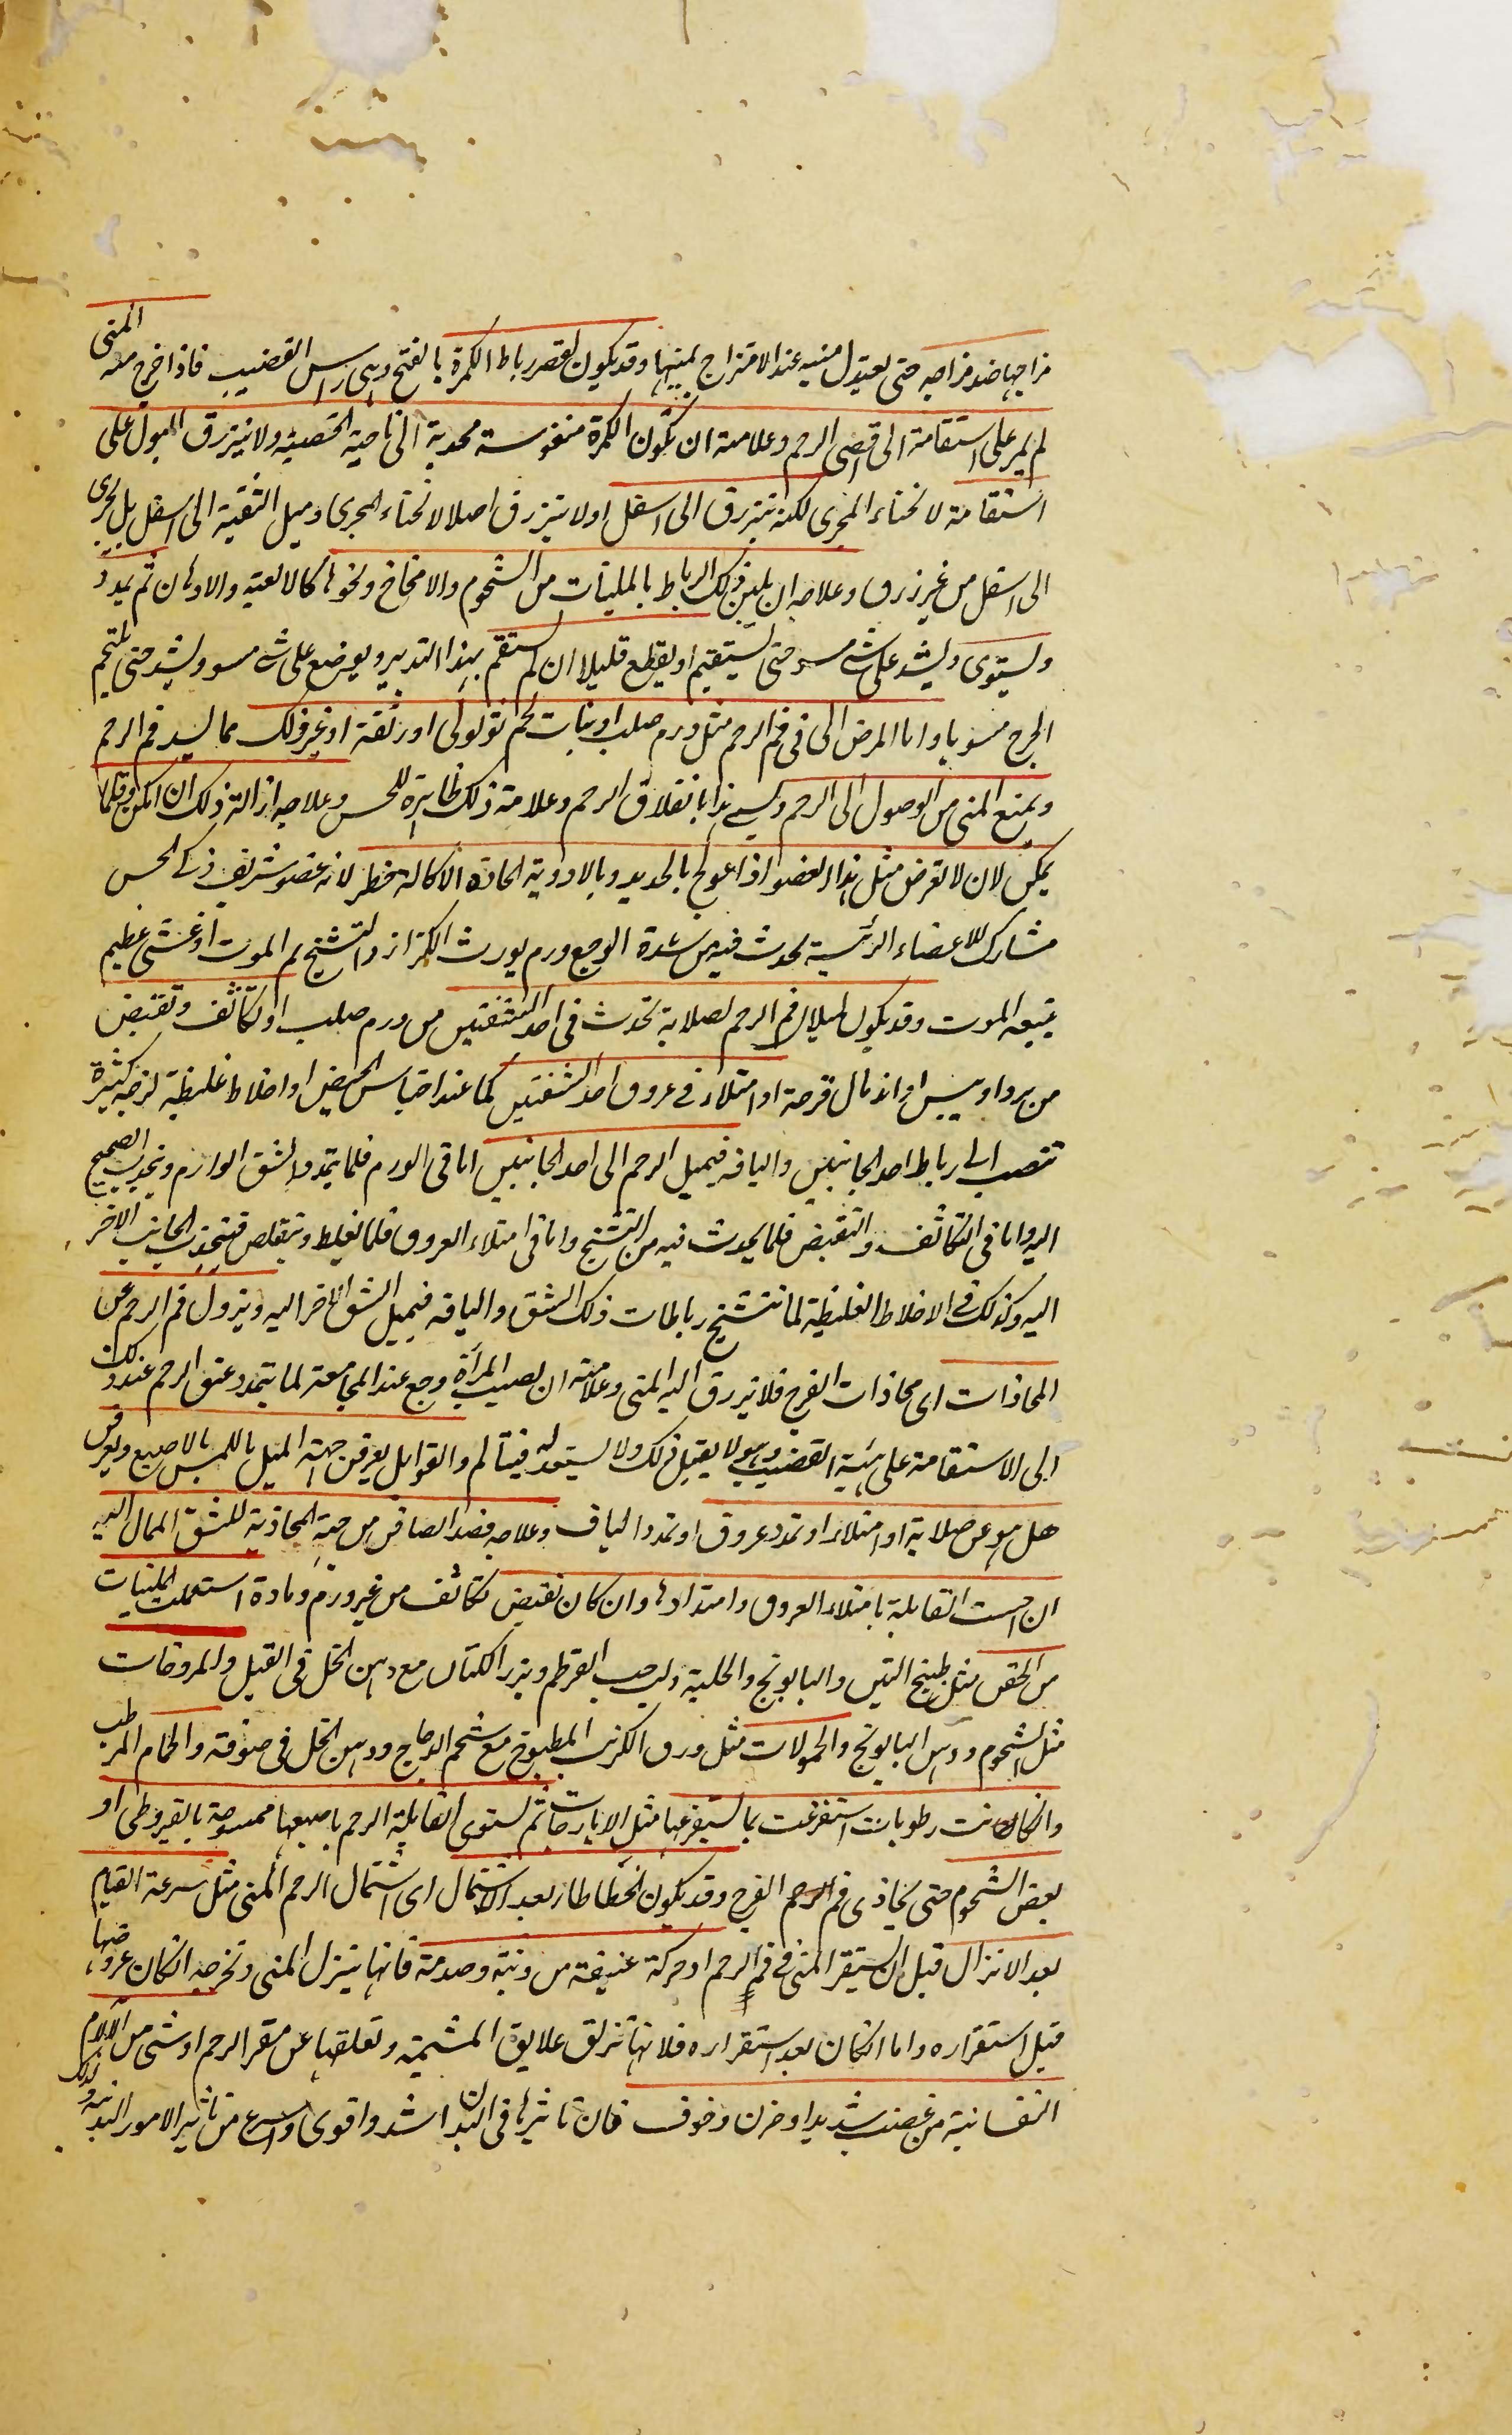 مزاجها ضد مزاجه حتى يعتدل منيه عند الامتزاج بمنيها وقد يكون لقصر رباط الكمرة بالفتح وهى راس القضيب فاذا خرج منه المنى
لم يمر على استقامة الى اقصى الرحم وعلامته ان تكون الكمرة منقوسة محدبة الى ناحية الخصية ولا ينزرق البول على
استقامة لانحناء المجرى لكنه ينزرق الى اسفل او لا ينزرق اصلا لانحناء المجرى وميل الثقبة الى اسفل بل يجرى
الى اسفل من غير زرق وعلاجه ان يلين ذلك الرباط بالملينات من الشحوم والامخاخ ونحوها كالالعبة والادهان ثم يمدد
ويستوى ويشد على شے مسو حتى يستقيم او يقطع قليلا ان لم يستقم بهذا التدبير ويوضع على شے مسو ويشد حتى يلتحم
الجرح مسويا واما المرض الى فى فم الرحم مثل ورم صلب او نبات لحم ثولولى او رتقة او غير ذلك مما يسد فم الرحم
ويمنع المنى من الوصول الى الرحم ويسے هذا بانغلاق الرحم وعلامة ذلك ظاهرة للحس وعلاجه ازالة ذلك ان امكن وقلما
يمكن لان لا تعرض مثل هذا العضو اذا عولج بالحديد وبالادوية الحادة الاكالة خطر لانه عضو شريف ذكى الحس
مشارك للاعضاء الرئسية يحدث فيه من شدة الوجع ورم يورث الكزاز والتشنج ثم الموت او غشى عظيم
يتبعه الموت وقد يكون لميلان فم الرحم لصلابة تحدث فى احد الشفتين من ورم صلب او تكاثف وتقبض
من برد او يبس او اندمال قرحة او امتلاء فے عروق احد الشفتين كما عند احتباس الحيض او اخلاط غليظة لزجة كثيرة
تنصب الى رباط احد الجانبين والیافه فيميل الرحم الى احد الجانبين اما فى الورم فلما يتمدد الشق الوارم ويجذب الصحيح
اليه واما فى التكاثف والتقبض فلما يحدث فيه من التشنج واما فى امتلاء العروق فلما تغلظ وتتقلص فينجذب الجانب الاخر
اليه وكذلك فے الاخلاط الغليظة لما تتشنج رباطات ذلك الشق والیافه فيميل الشق الاخر اليه ويزول فم الرحم عن
المحاذات اى محاذات الفرج فلا ينزرق اليه المنى وعلامته ان يصيب المرأة وجع عند المجامعة لما يتمدد عنق الرحم عند ذلك
الى الاستقامة على هيئة القضيب وهو لا يقبل ذلك ولا يستعد له فيتألم والقوابل يعرفن جهة الميل باللمس بالاصبع ويعرفن
هل هو عن صلابة او امتلاء او تمدد عروق او تمدد الياف وعلاجه فصد الصافن من جهة المحاذية للشق الممال اليه
ان احست القابلة بامتلاء العروق وامتدادها وان كان تقبض وتكاثف من غير ورم ومادة استعملت الملينات
من الحقن مثل طبيخ التين والبابونج والحلبة ولب حب القرطم وبزر الكتان مع دهن الخل فى القبل والمروخات
مثل الشحوم ودهن البابونج والحمولات مثل ورق الكرنب المطبوخ مع شحم الدجاج ودهن الخل فى صوفة والحمام المرطب
وان كانت رطوبات استفرغت بما يستفرغها مثل الايارجات ثم تستوى القابلة الرحم باصبعها ممسوحة بالقيروطى او
بعض الشحوم حتى يحاذى فم الرحم الفرج وقد يكون لخطا طار بعد الاشتمال اى اشتمال الرحم المنى مثل سرعة القيام
بعد الانزال قبل ان يستقر المنى فے فم الرحم او حركة عنيفة من وثبة وصدمة فانها تنزل المنى وتخرجه ان كان عروضها
قبل استقراره واما ان كان بعد استقراره فلانها تزلق علايق المشيمة وتعلقها عن مقر الرحم او شى من الالام
النفسانية من غضب شديد او حزن وخوف فان تاثيرها فى البدن اشد واقوى واسرع من تاثير الامور البدنية وكذلك